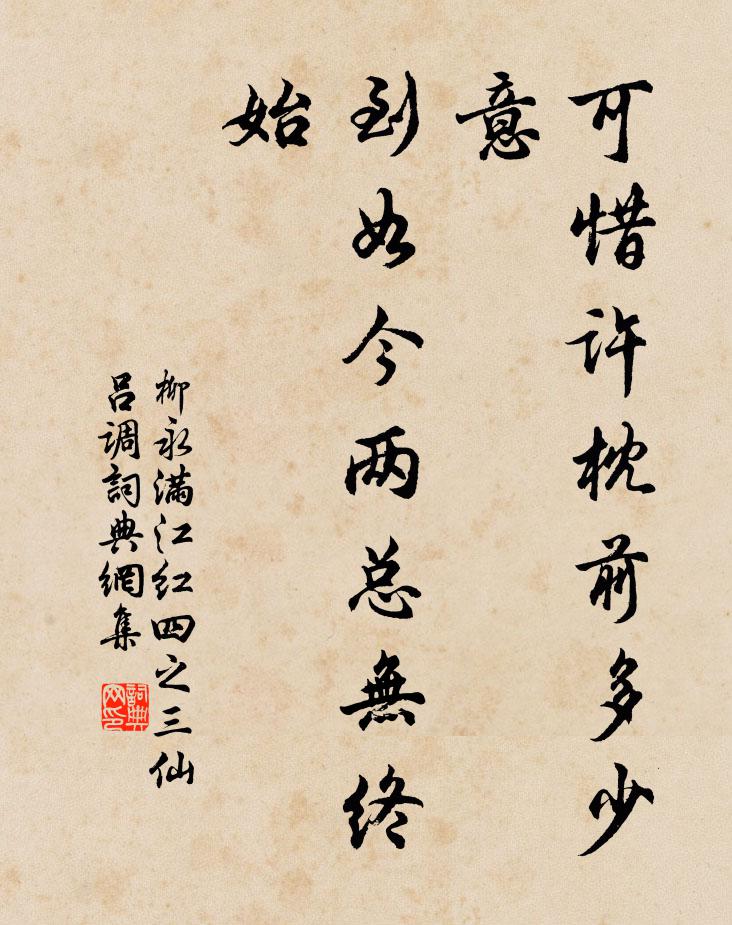 可惜许枕前多少
意
到如今两总無终
始
柳永满江红四之三仙
吕调詞典網集
詞典
网印